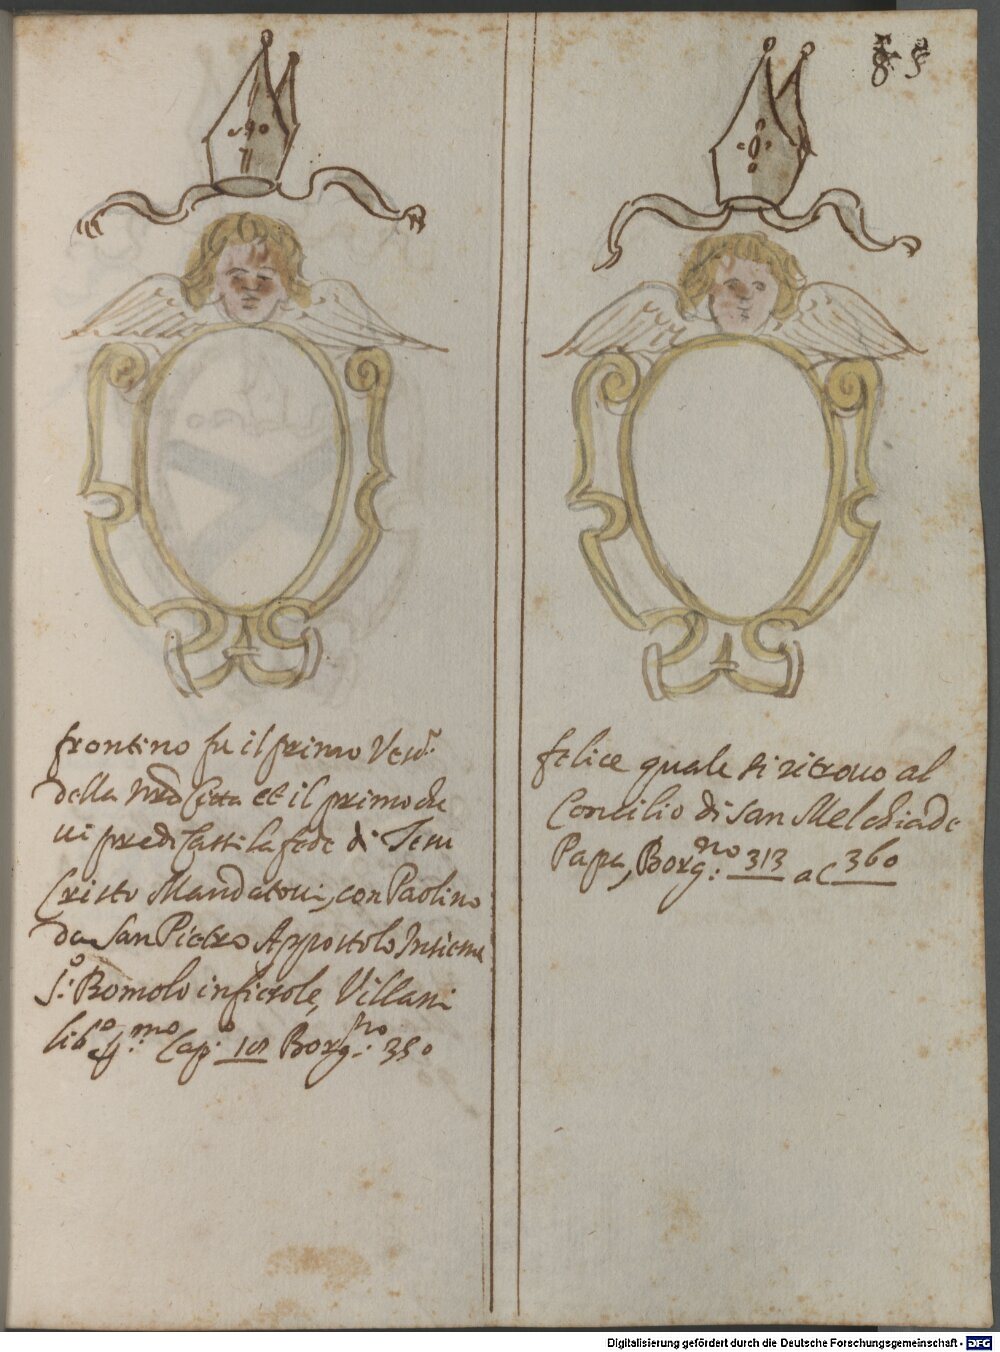 5
frontino fu il primo Vesc.º
della nrã Citta et il primo che
vi predicassi la fede di Iesu
Cristo Mandatovi, con Paolino
da San Pietro Appostolo Insieme
S.º Romolo in fiesole, Villani
lib.º Cap.º 10 Borg.no: 350
felice quale si ritrovo al
Concilio di San Melchiade
Papa, Borg.no: 313 a c 360
Digitalisierung gefördert durch die Deutsche Forschungsgemeinschaft - DFG